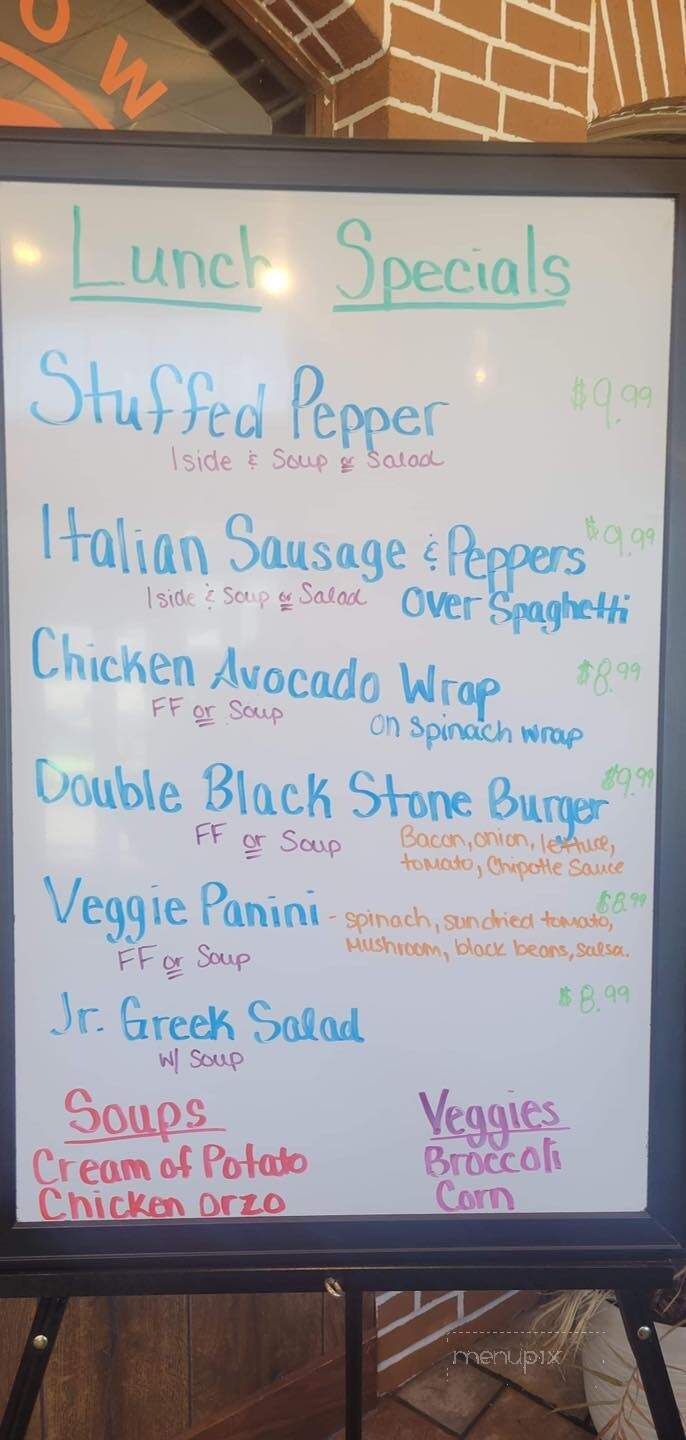 OW
Lunch Specials
Stuffed Pepper $9.99
1 side & Soup or Salad
Italian Sausage & Peppers $9.99
1 side & Soup or Salad Over Spaghetti
Chicken Avocado Wrap $8.99
FF or Soup On Spinach wrap
Double Black Stone Burger $9.99
FF or Soup Bacon, onion, lettuce,
tomato, Chipotle Sauce
Veggie Panini - spinach, sundried tomato, $8.99
FF or Soup Mushroom, black beans, salsa.
Jr. Greek Salad $8.99
w/ Soup
Soups Veggies
Cream of Potato Broccoli
Chicken Orzo Corn
menupix